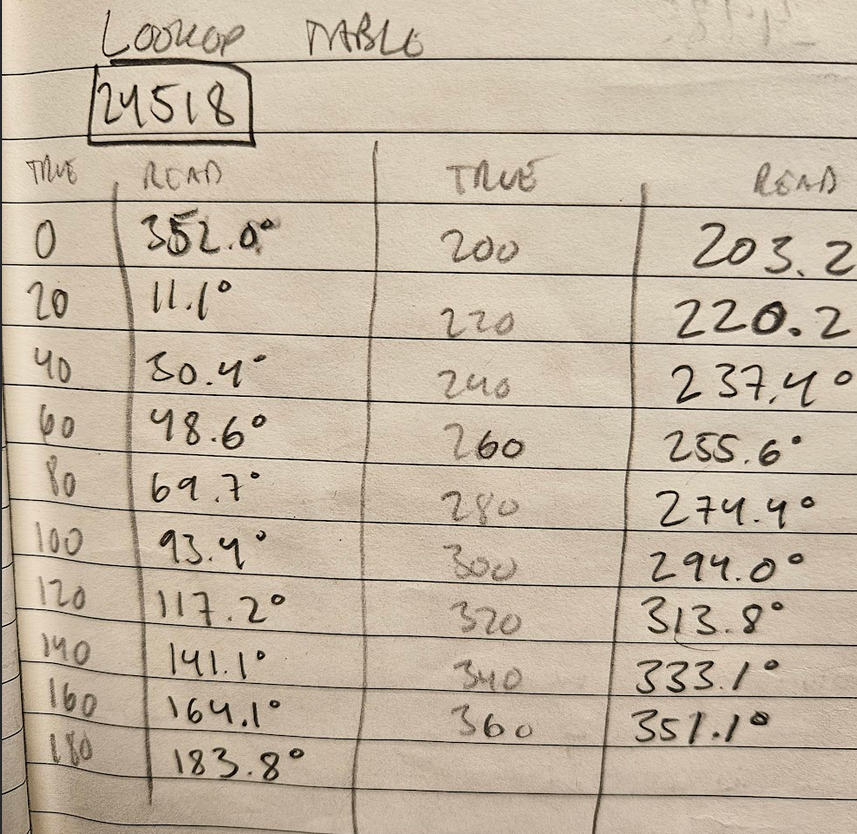 LOOKUP TABLE
24518
TRUE READ TRUE READ
0 352.0° 200 203.2
20 11.1° 220 220.2
40 30.4° 240 237.4°
60 48.6° 260 255.6°
80 69.7° 280 274.4°
100 93.4° 300 294.0°
120 117.2° 320 313.8°
140 141.1° 340 333.1°
160 164.1° 360 351.1°
180 183.8°